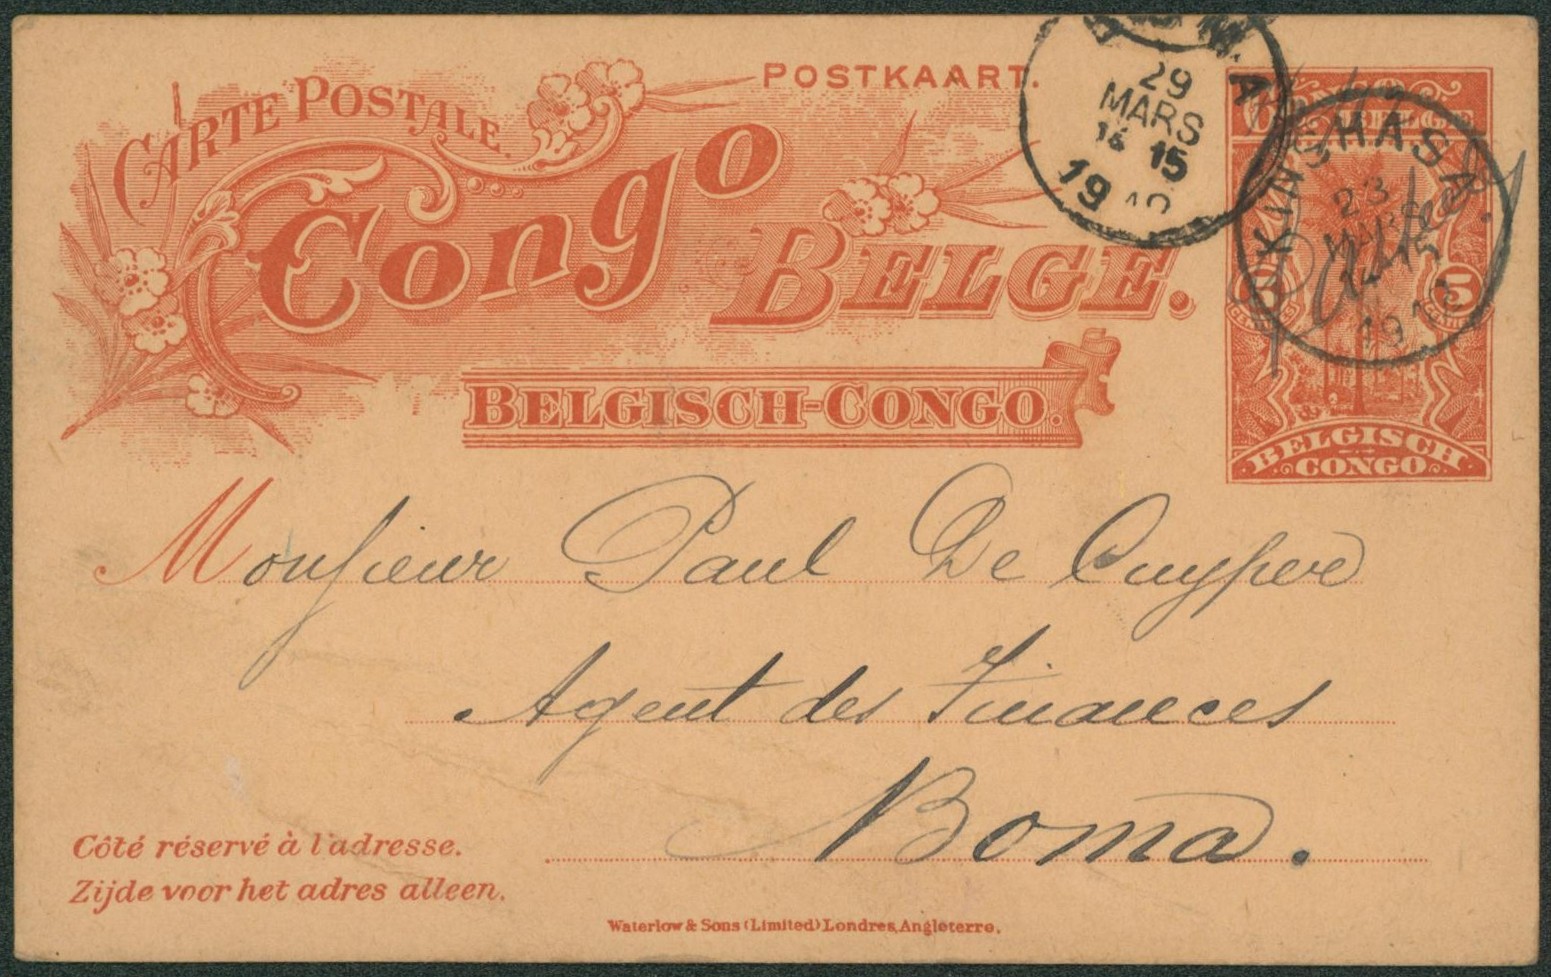 POSTKAART.
CARTE POSTALE.
Congo
BELGE.
BELGISCH-CONGO.
29
MARS
15
19
KINSHASA
23
19
BELGE
5
BELGISCH
CONGO
Monsieur Paul De Cuyper
Agent des Finances
Boma.
Côté réservé à l'adresse.
Zijde voor het adres alleen.
Waterlow & Sons (Limited) Londres, Angleterre.